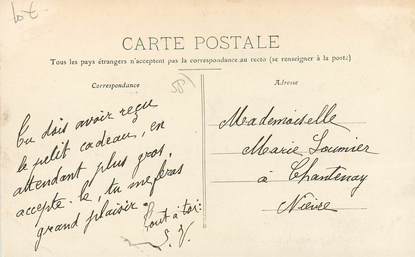 lot
58
CARTE POSTALE
Tous les pays étrangers n'acceptent pas la correspondance au recto (se renseigner à la poste)
Correspondance
Adresse
Tu dois avoir reçu
le petit cadeau, en
attendant plus gros,
accepte-le, tu me feras
grand plaisir.
Tout à toi:
Mademoiselle
Marie
à Chantenay
Nièvre